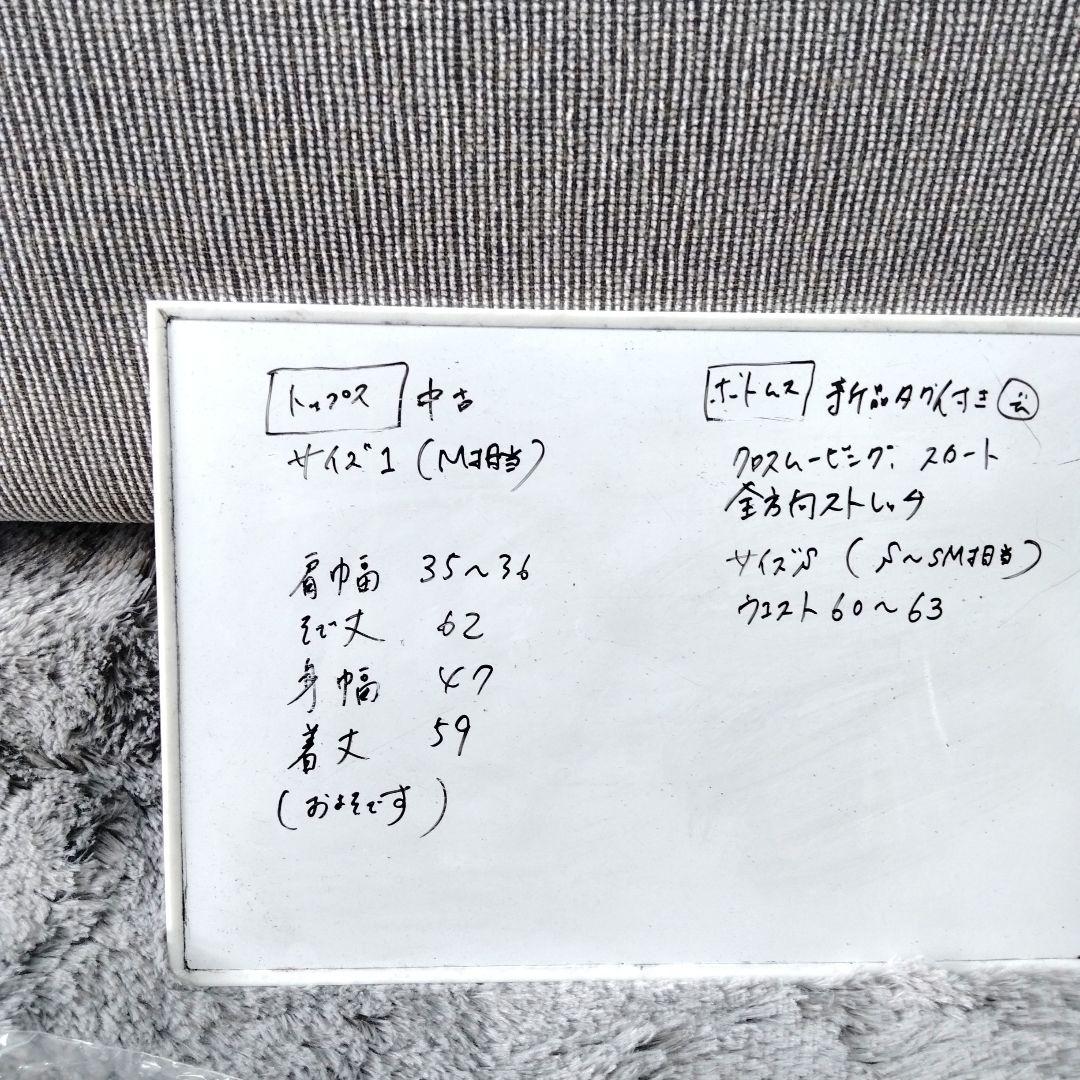 トップス 中古
サイズ1 (M相当)
肩幅 35～36
そで丈 62
身幅 47
着丈 59
(およそです)
ボトムス 新品タグ付き
クロスムービング スカート
全方向ストレッチ
サイズS (S～SM相当)
ウエスト 60～63